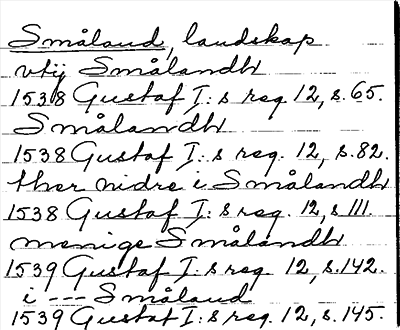 Småland, landskap
vtij Smålandh
1538 Gustaf I:s reg. 12, s. 65.
Smålandh
1538 Gustaf I:s reg. 12, s. 82.
ther nidre i Smålandh
1538 Gustaf I:s reg. 12, s 111.
menige Smålandh
1539 Gustaf I:s reg. 12, s. 142.
i --- Småland
1539 Gustaf I:s reg. 12, s. 145.